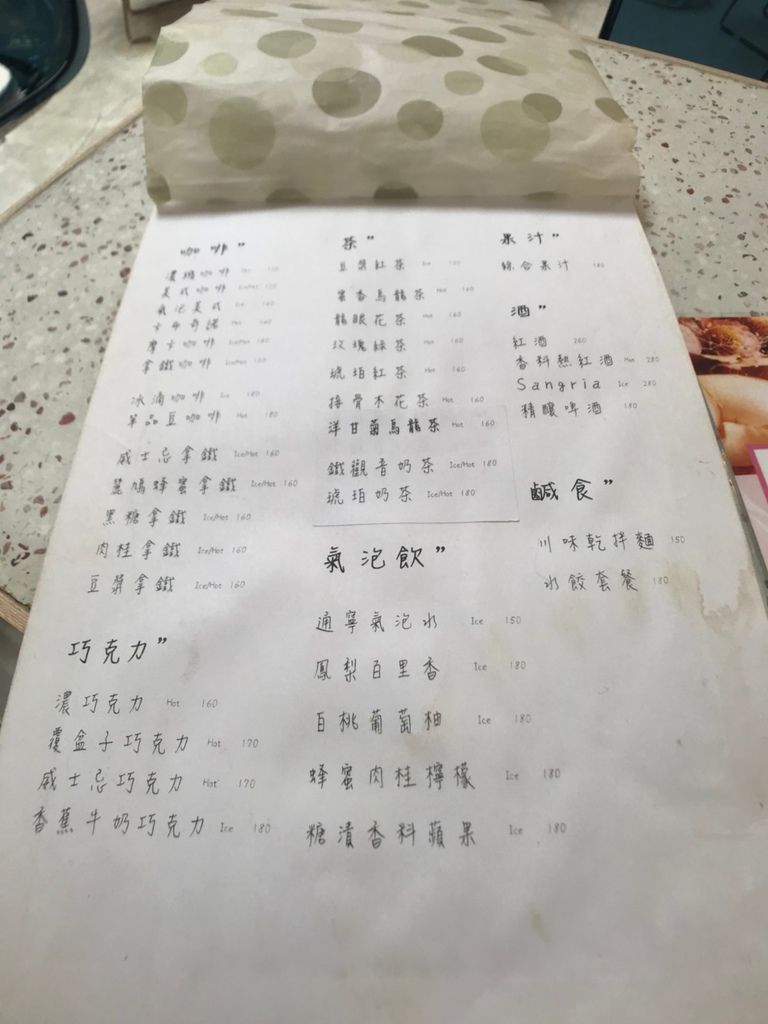 咖啡”
濃縮咖啡 Hot
美式咖啡 Ice/Hot 120
氣泡美式 Ice 160
卡布奇諾 Hot 160
摩卡咖啡 Ice/Hot 180
拿鐵咖啡 Ice/Hot
冰滴咖啡 Ice 180
單品豆咖啡 Hot 180
威士忌拿鐵 Ice/Hot 160
蜂蜜拿鐵 Ice/Hot 160
黑糖拿鐵 Ice/Hot 160
肉桂拿鐵 Ice/Hot 160
豆漿拿鐵 Ice/Hot 160
巧克力”
濃巧克力 Hot 160
覆盆子巧克力 Hot 170
威士忌巧克力 Hot 170
香蕉牛奶巧克力 Ice 180
茶”
豆漿紅茶 Ice
蜜香烏龍茶 Hot 160
龍眼花茶 Hot 160
玫瑰綠茶 Hot 160
琥珀紅茶 Hot 160
接骨木花茶 Hot 160
洋甘菊烏龍茶 Hot 160
鐵觀音奶茶 Ice/Hot 180
琥珀奶茶 Ice/Hot 180
氣泡飲”
通寧氣泡水 Ice 150
鳳梨百里香 Ice 180
白桃葡萄柚 Ice 180
蜂蜜肉桂檸檬 Ice 180
糖漬香料蘋果 Ice 180
果汁”
綜合果汁 180
酒”
紅酒 260
香料熱紅酒 Hot 280
Sangria Ice 280
精釀啤酒 180
鹹食”
川味乾拌麵 150
水餃套餐 180